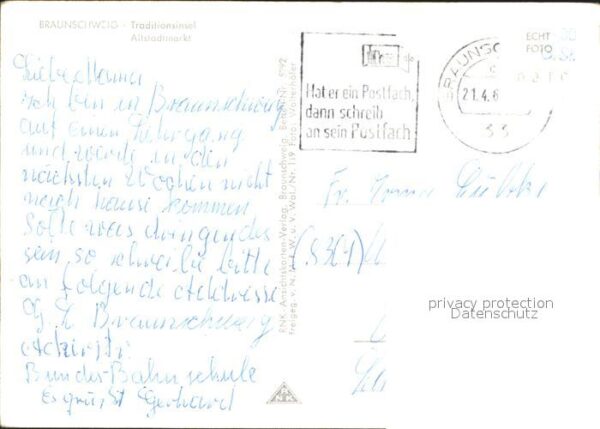 BRAUNSCHWEIG - Traditionsinsel
Altstadtmarkt
Liebe Mama
ich bin in Braunschweig
auf einen Lehrgang
und werde in den
nächsten Wochen nicht
nach hause kommen
Sollte was dringendes
sein so schreibe bitte
an folgende Adresse
G. L. Braunschweig
Ackerstr.
Bundes Bahn schule
Es grüßt Gerhard
RNK - Ansichtskarten-Verlag, Braunschweig
Freigeg. v. N. M. f. W. u. V. Wol./Nr. 119 Foto
ECHT
FOTO
Hat er ein Postfach,
dann schreib
an sein Postfach
BRAUNSC
21.4.6
33
Fr.
privacy protection
Datenschutz
RNK